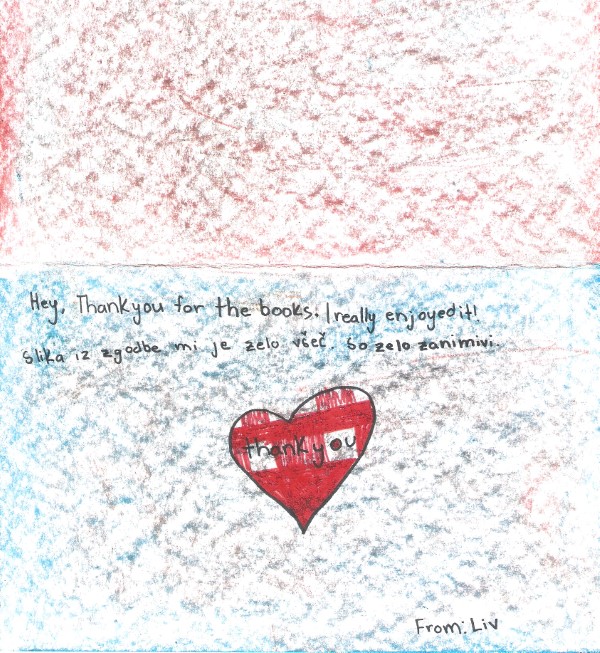 Hey, Thankyou for the books. I really enjoyed it!
Slika iz zgodbe mi je zelo všeč. So zelo zanimivi.
thank you
From: Liv